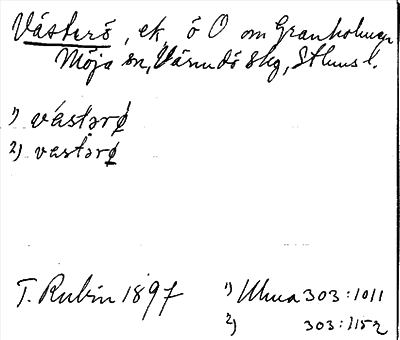 Västerö, ek, ö O om Granholmen
Möja sn, Värmdö skg, Sthms l.
1) västərø
2) vastərø
T. Rubin 1897
1) Ulma 303:1011
2) 303:1152